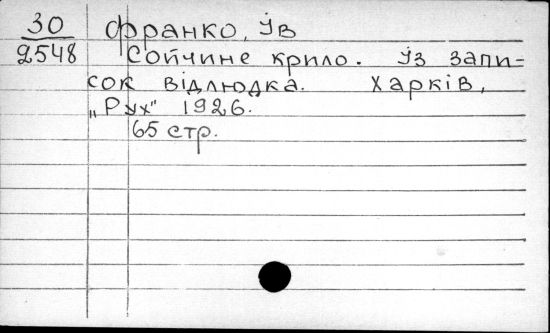 30 Франко, Ів
2548 Сойчине крило. Із запи=
сок відлюдка. Харків,
„Рух" 1926.
65 стр.